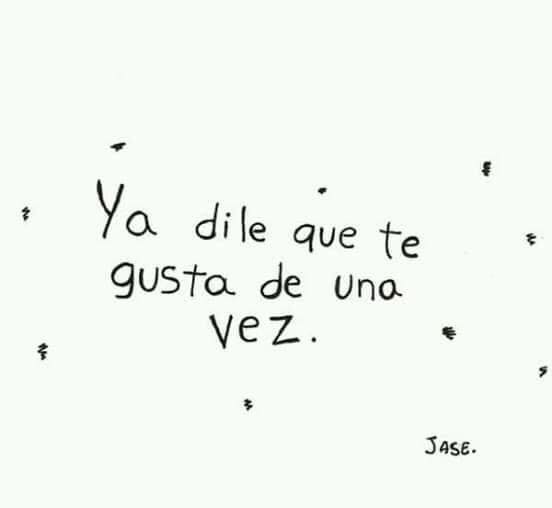 Ya dile que te
gusta de una
vez.
JASE.